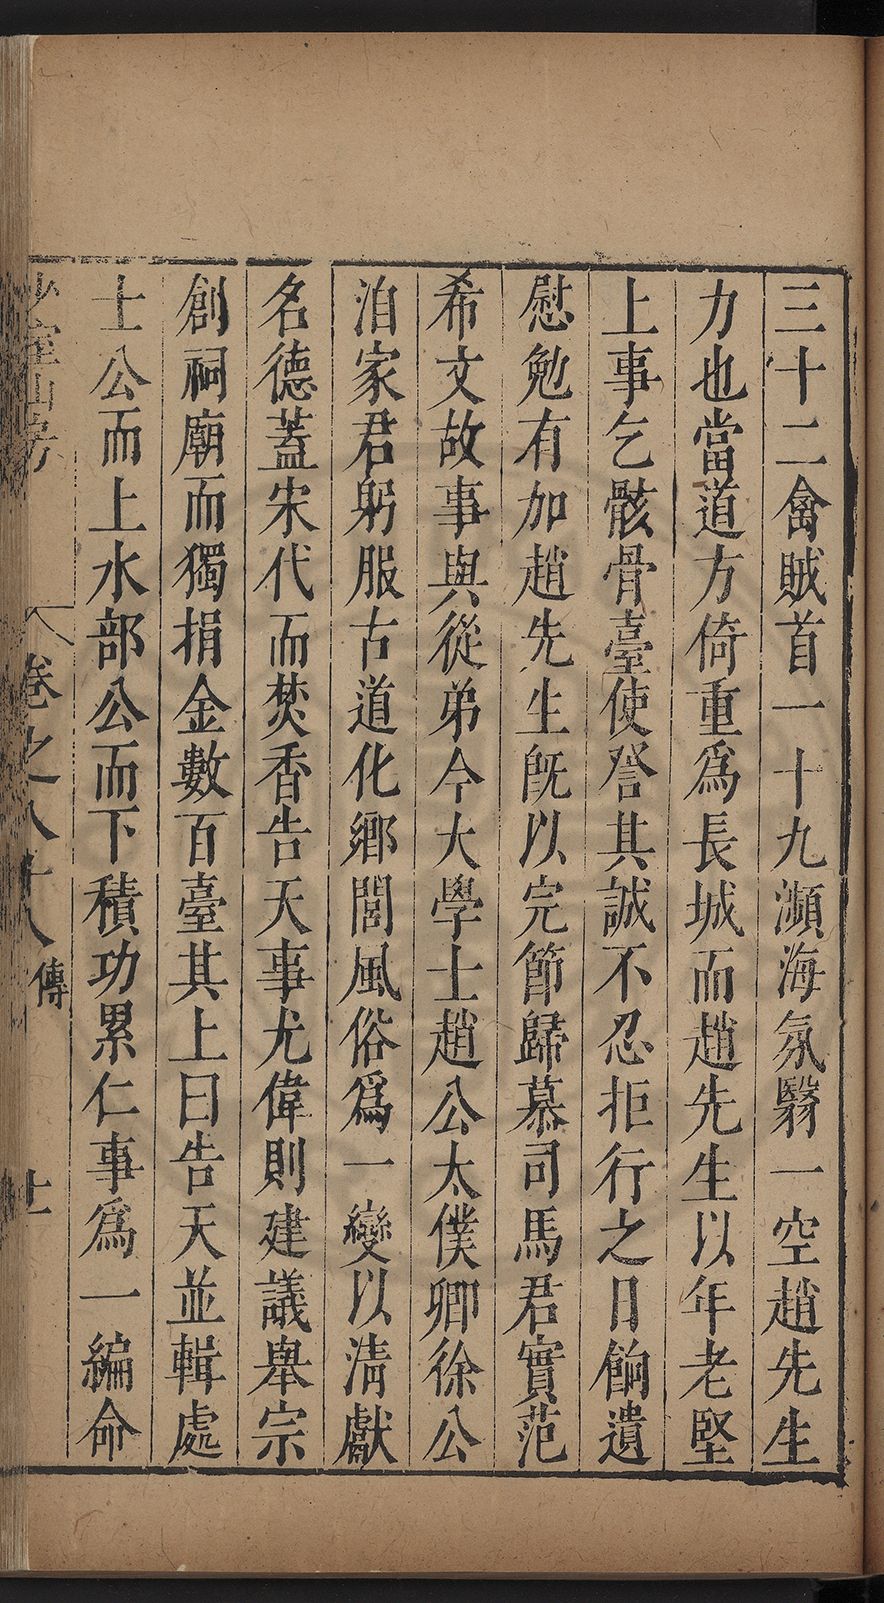 三十二禽賊首一十九瀕海氛翳一空趙先生
力也當道方倚重爲長城而趙先生以年老堅
上事乞骸骨臺使詧其誠不忍拒行之日餉遺
慰勉有加趙先生旣以完節歸慕司馬君實范
希文故事與從弟今大學士趙公太僕卿徐公
洎家君躬服古道化鄉閭風俗爲一變以淸獻
名德蓋宋代而焚香告天事尤偉則建議舉宗
創祠廟而獨捐金數百臺其上曰告天並輯處
士公而上水部公而下積功累仁事爲一編命
少室山房
卷之八十八 傳